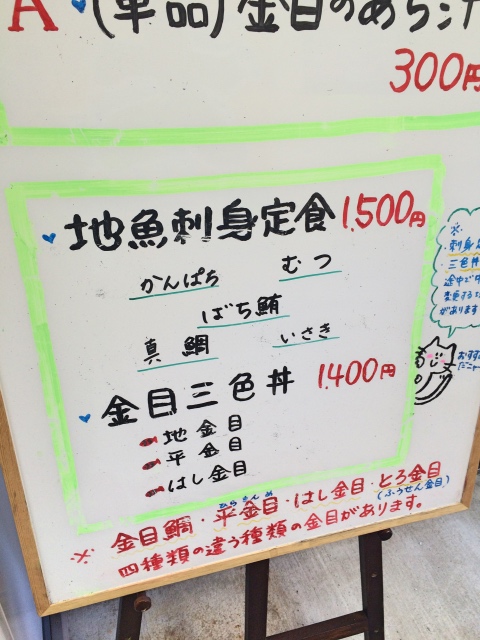 A (単品)金目のあら汁
300円
地魚刺身定食 1,500円
かんぱち むつ
ばち鮪
真鯛 いさき
金目三色丼 1,400円
地金目
平金目
はし金目
※
刺身
三色丼
途中で
変更する
があります
おすすめ
だニャ
※金目鯛・平金目・はし金目・とろ金目
(ふうせん金目)
四種類の違う種類の金目があります。